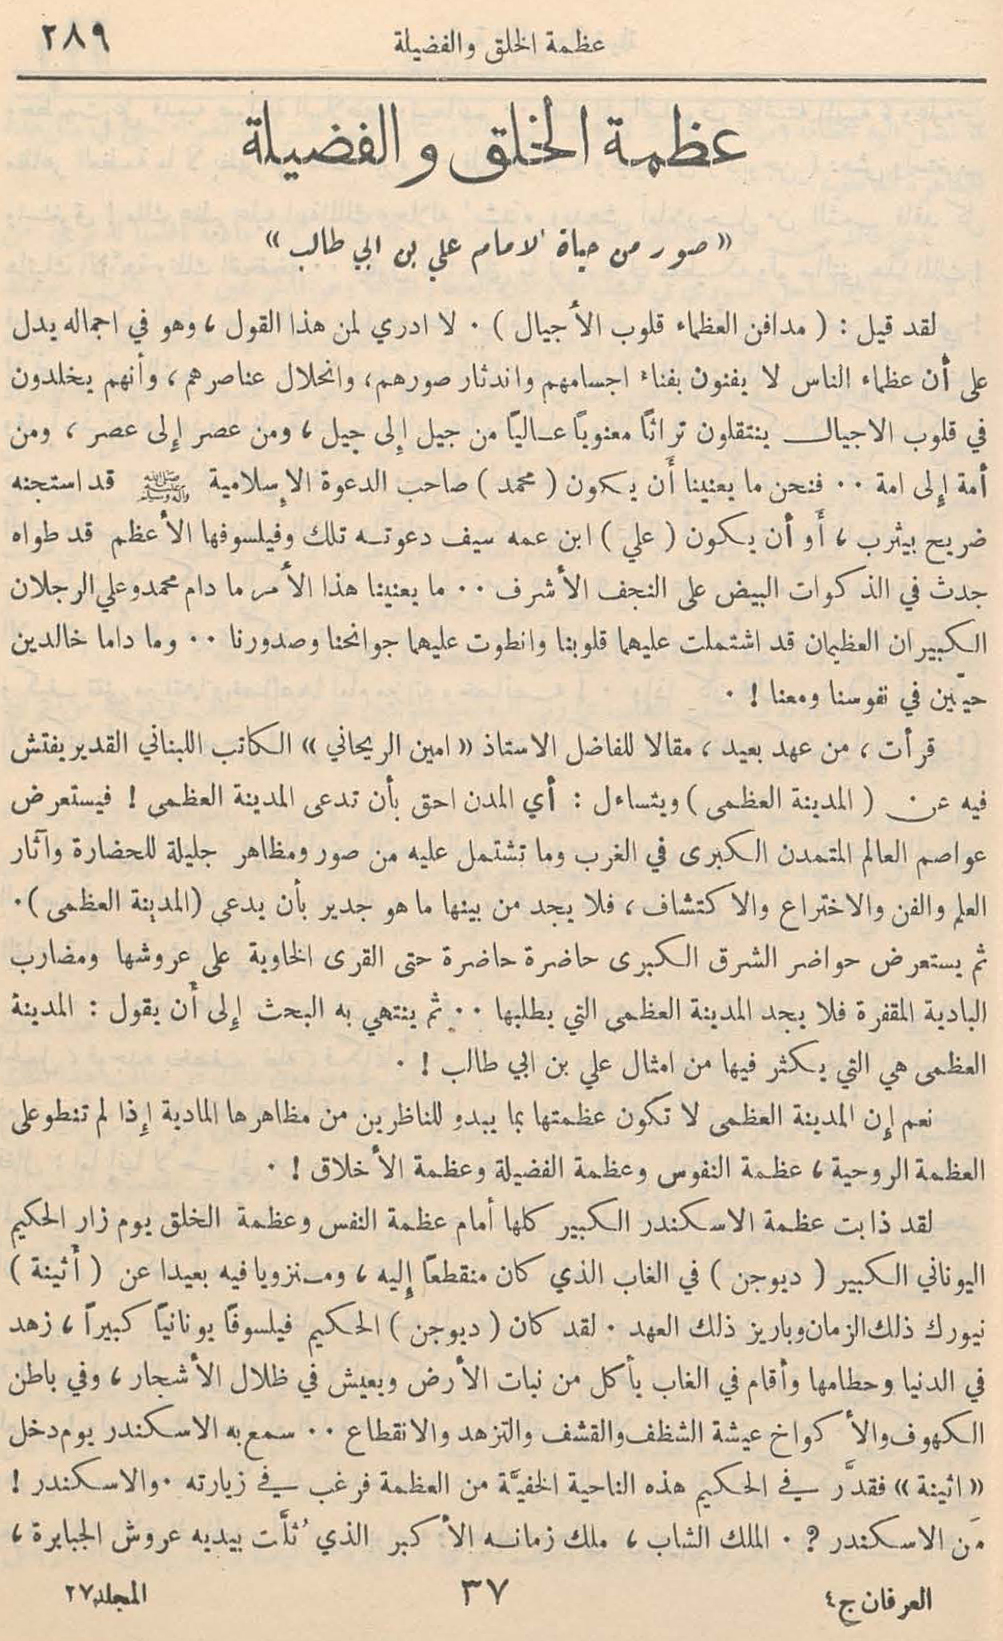 عظمة الخلق والفضيلة ٢٨٩
عظمة الخلق والفضيلة
« صور من حياة الامام علي بن ابي طالب »
لقد قيل : ( مدافن العظماء قلوب الأجيال ) . لا ادري لمن هذا القول ، وهو في اجماله يدل
على أن عظماء الناس لا يفنون بفناء اجسامهم واندثار صورهم، وانحلال عناصرهم ، وأنهم يخلدون
في قلوب الاجيال ينتقلون تراثاً معنوياً عالياً من جيل إلى جيل ، ومن عصر إلى عصر ، ومن
أمة إلى امة .. فنحن ما يعنينا أن يكون ( محمد ) صاحب الدعوة الإسلامية ﷺ قد استجنه
ضريح بيثرب ، أو أن يكون ( علي ) ابن عمه سيف دعوته تلك وفيلسوفها الأعظم قد طواه
جدث في الذكوات البيض على النجف الأشرف .. ما يعنينا هذا الأمر ما دام محمد وعلي الرجلان
الكبيران العظيمان قد اشتملت عليهما قلوبنا وانطوت عليهما جوانحنا وصدورنا .. وما داما خالدين
حيّين في نفوسنا ومعنا ! .
قرأت ، من عهد بعيد ، مقالا للفاضل الاستاذ « امين الريحاني » الكاتب اللبناني القدير يفتش
فيه عن ( المدينة العظمى ) ويتساءل : أي المدن احق بأن تدعى المدينة العظمى ! فيستعرض
عواصم العالم المتمدن الكبرى في الغرب وما تشتمل عليه من صور ومظاهر جليلة للحضارة وآثار
العلم والفن والاختراع والاكتشاف ، فلا يجد من بينها ما هو جدير بأن يدعى (المدينة العظمى ).
ثم يستعرض حواضر الشرق الكبرى حاضرة حاضرة حتى القرى الخاوية على عروشها ومضارب
البادية المقفرة فلا يجد المدينة العظمى التي يطلبها .. ثم ينتهي به البحث إلى أن يقول : المدينة
العظمى هي التي يكثر فيها من امثال علي بن ابي طالب ! .
نعم إن المدينة العظمى لا تكون عظمتها بما يبدو للناظرين من مظاهرها المادية إذا لم تنطو على
العظمة الروحية ، عظمة النفوس وعظمة الفضيلة وعظمة الأخلاق ! .
لقد ذابت عظمة الاسكندر الكبير كلها أمام عظمة النفس وعظمة الخلق يوم زار الحكيم
اليوناني الكبير ( ديوجن ) في الغاب الذي كان منقطعاً إليه ، ومنزويا فيه بعيدا عن ( أثينة )
نيورك ذلك الزمان وباريز ذلك العهد . لقد كان ( ديوجن ) الحكيم فيلسوفاً يونانياً كبيراً ، زهد
في الدنيا وحطامها وأقام في الغاب يأكل من نبات الأرض ويعيش في ظلال الأشجار ، وفي باطن
الكهوف والأكواخ عيشة الشظف والقشف والتزهد والانقطاع .. سمع به الاسكندر يوم دخل
« اثينة » فقدَّر في الحكيم هذه الناحية الخفيَّة من العظمة فرغب في زيارته . والاسكندر !
مَن الاسكندر ? . الملك الشاب ، ملك زمانه الأكبر الذي ثلَّت بيديه عروش الجبابرة ،
العرفان ج ٤ ٣٧ المجلد ٢٧